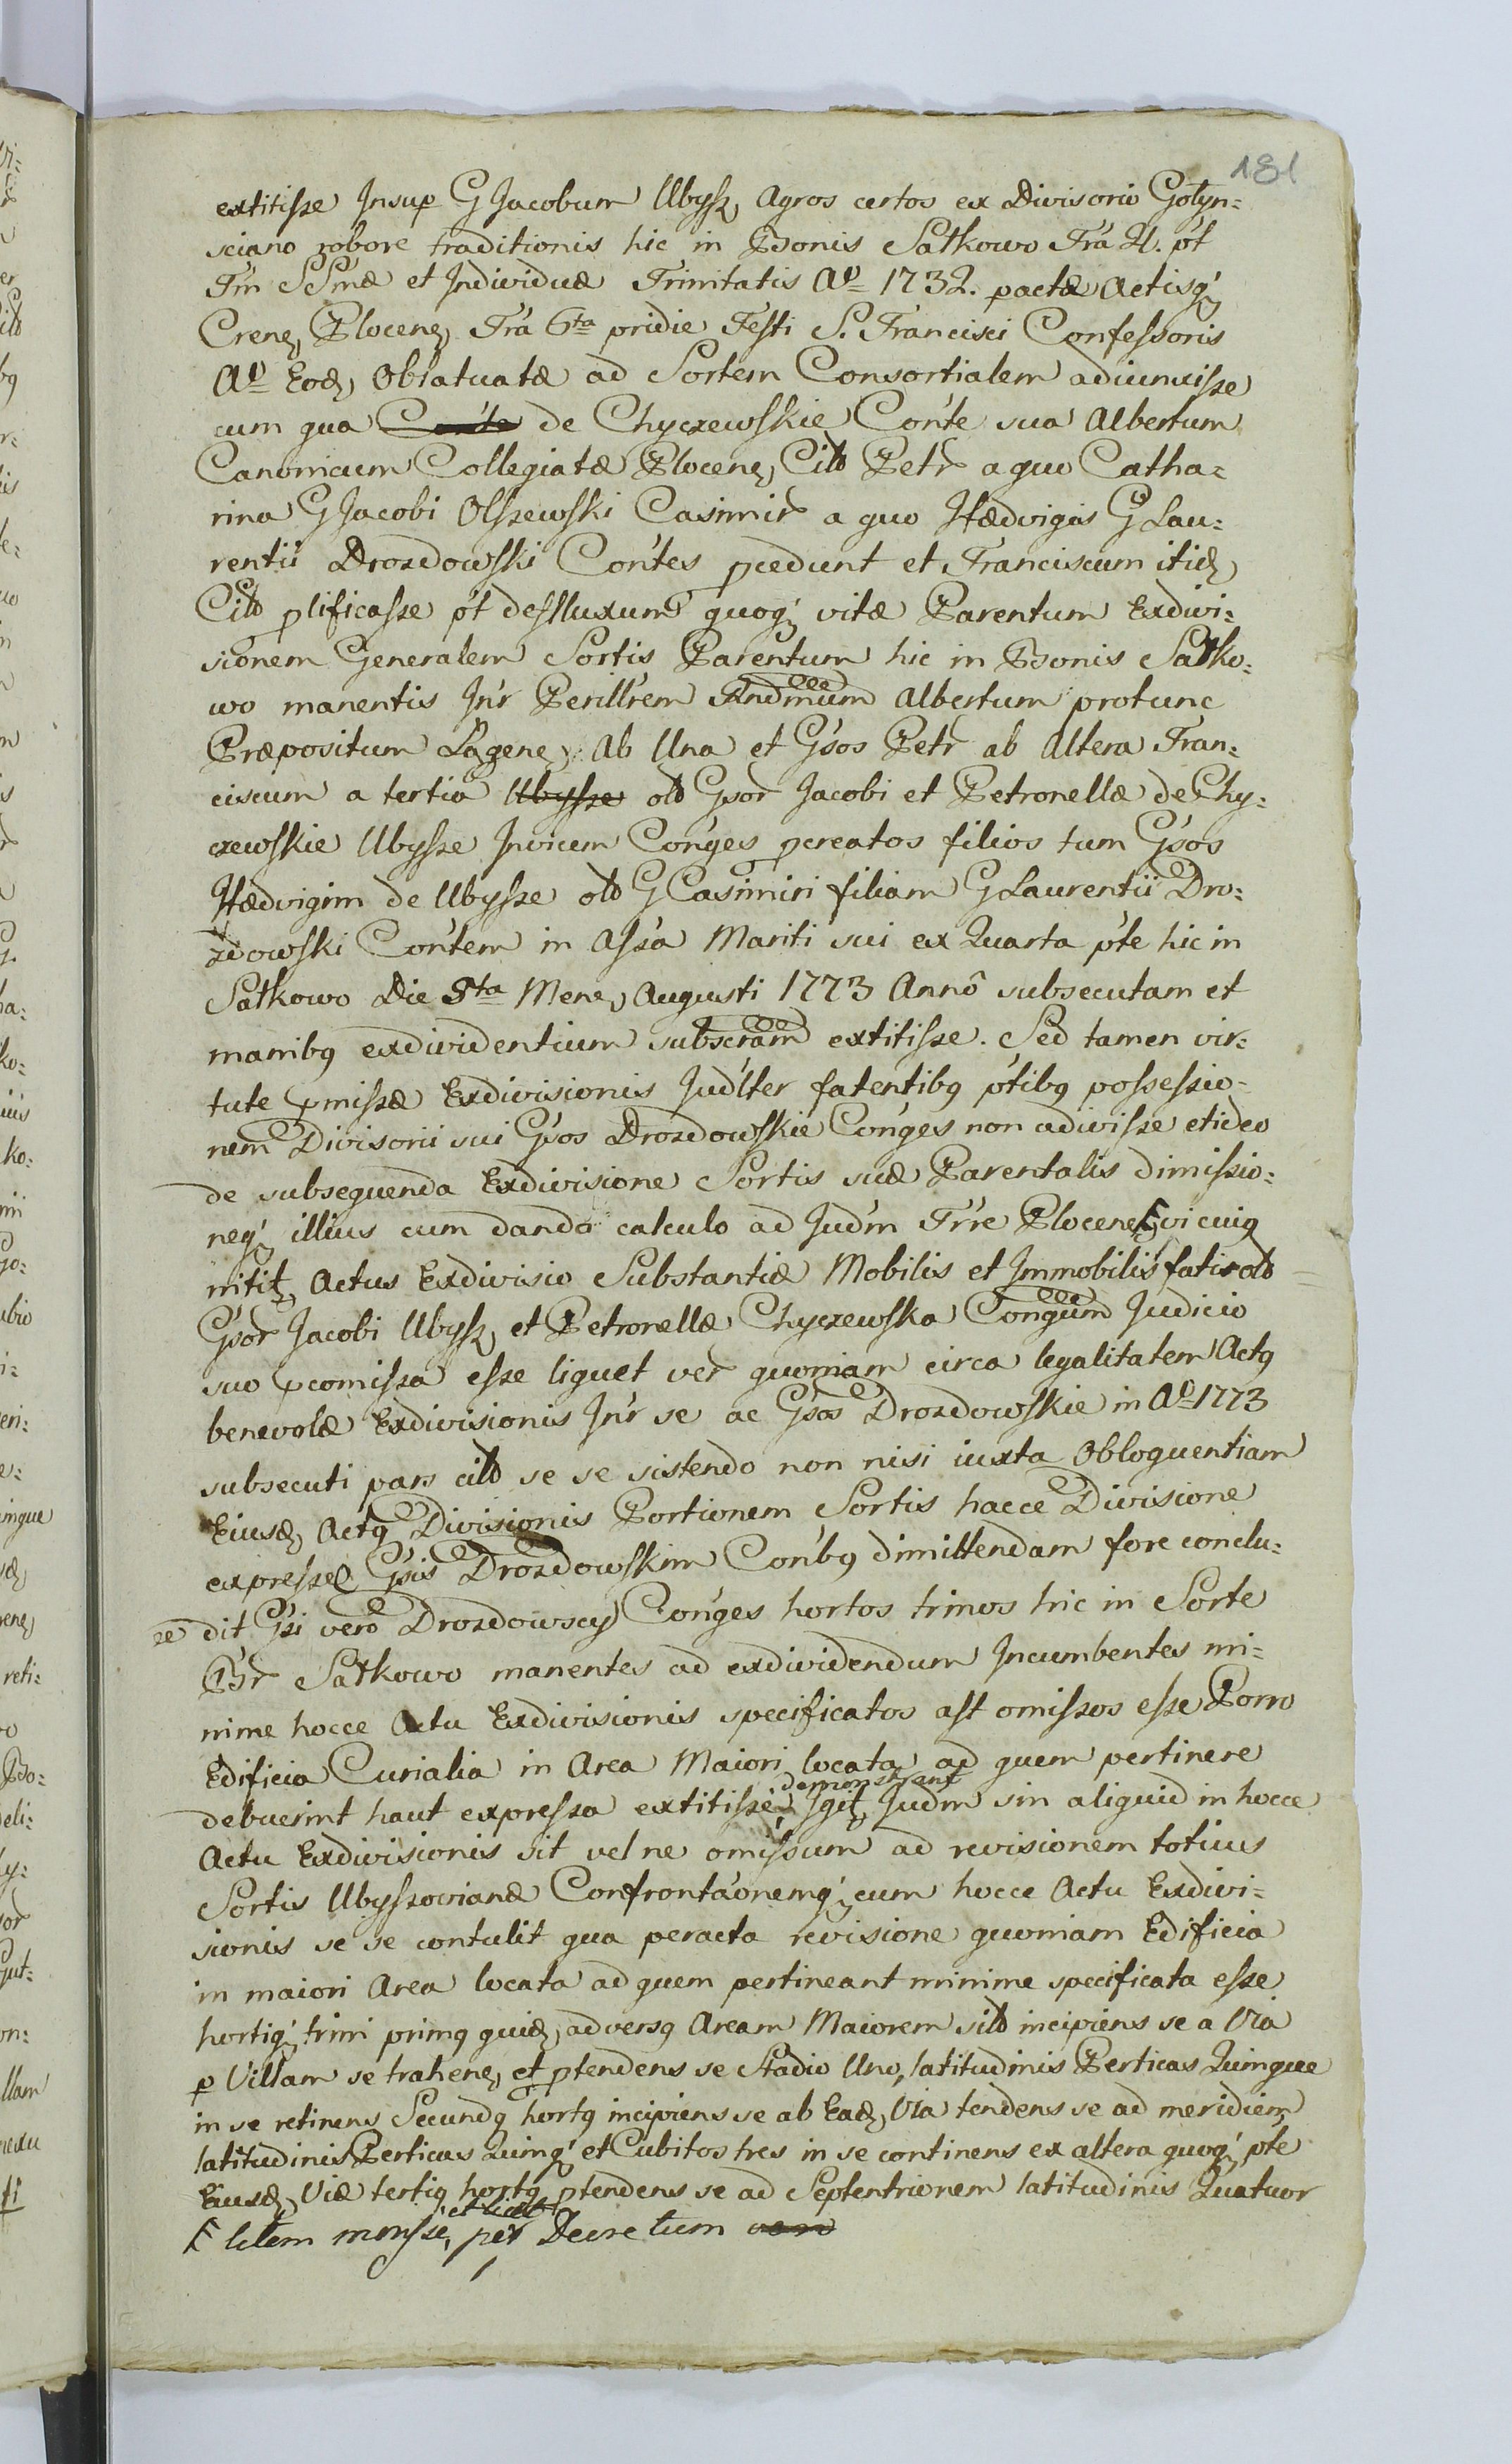 181
extitisse Insup G Jacobum Ubysz, Agros certos ex Divisorio Gołyn=
sciano robore traditionis hic in Bonis Sątkowo Fra II. pt
Fm SSmæ et Individuæ Trinitatis Aº 1732. pactæ Actisq́
Crene, Plocene, Fra 6ta pridie Festi S. Francisci Confessoris
Aº Eod, Oblatuatæ ad Sortem Consortialem adiunxisse
cum qua Conte de Chyczewskie Conte sua Albertum
Canonicum Collegiatæ Plocene, Cild Petr a quo Catha=
rina G Jacobi Olszewski Casimir a quo Hædvigis G Lau=
rentii Drozdowski Contes pcedunt et Franciscum itid,
Cild plificasse pt deffluxum quoq́ vitæ Parentum Exdivi=
sionem Generalem Sortis Parentum hic in Bonis Sątko=
wo manentis Inr Perillrem Andmum Albertum protunc
Præpositum Łagene, Ab Una et Gsos Petr ab Altera Fran=
ciscum a tertia Ubysze old Gsor Jacobi et Petronellæ de Chy=
czewskie Ubysze Invicem Conges pcreatos filios tum Gsos
Hædvigim de Ubysze old G Casimiri filiam G Laurentii Dro=
zdowski Contem in Assa Mariti sui ex Quarta pte hic in
Sątkowo Die 5ta Mene, Augusti 1773 Anno subsecutam et
manibq exdividentium subscram extitisse. Sed tamen vir=
tute pmissæ Exdivisionis Judlter fatentibq ptibq possessio=
nem Divisorii sui Gsos Drozdowskie Conges non adivisse et ideo
de subsequenda Exdivisione Sortis suæ Parentalis dimissio=
neq́ illius cum dando calculo ad Judm Trre Plocene, vi cuiq
nitit, Actus Exdivisio Substantiæ Mobilis et Immobilis fatis old
Gsor Jacobi Ubysz, et Petronellæ Chyczewska Congum Judicio
suo pcomissa esse liquet ver quoniam circa legalitatem Actq
benevolæ Exdivisionis Inr se ac Gsos Drozdowskie in Aº 1773
subsecuti pars cild se se sistendo non nisi iuxta Obloquentiam
Eiusd, Actq Divisionis Portionem Sortis hacce Divisione
expressæ Gsis Drozdowskim Conbq dimittendam fore conclu=
se dit Gsi vero Drozdowscy Conges hortos trinos hic in Sorte
Br Sątkowo manentes ad exdividendum Incumbentes mi=
nime hocce Actu Exdivisionis specificatos ast omissos esse Porro
Edificia Curialia in Area Maiori locata ad quem pertinere
debuerint haut expressa extitisse, demonstrant Igit, Judm sin aliquid in hocce
Actu Exdivisionis sit vel ne omissum ad revisionem totius
Sortis Ubyszovianæ Confrontaonemq́ cum hocce Actu Exdivi=
sionis se se contulit qua peracta revisione quoniam Edificia
in maiori Area locata ad quem pertineant minime specificata esse
hortiq́ trini primq quid, adversq Aream Maiorem sild incipiens se a Via
p Villam se trahene, et ptendens se Stadio Uno, latitudinis Perticas Quinque
in se retinens Secundq hortq incipiens se ab Ead, Via tendens se ad meridiem
latitudinis Perticas Quinq́ et Cubitos tres in se continens ex altera quoq́ pte
Eiusd, Viæ tertiq hortq ptendens se ad Septentrionem latitudinis Quatuor
F litem monsse, per Decretum